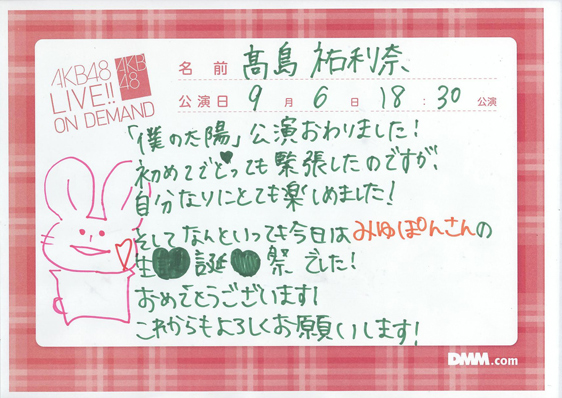 AKB48
LIVE!!
ON DEMAND
AKB
48
名前 髙島 祐利奈
公演日 9月6日 18:30公演
「僕の太陽」公演おわりました!
初めてでとっても緊張したのですが、
自分なりにとても楽しめました!
そしてなんといっても今日はみゆぽんさんの
生誕祭でした!
おめでとうございます!
これからもよろしくお願いします!
DMM.com